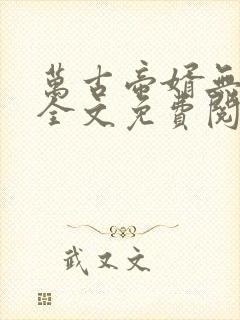 萬古帝婿無
全文免費閱
武又文